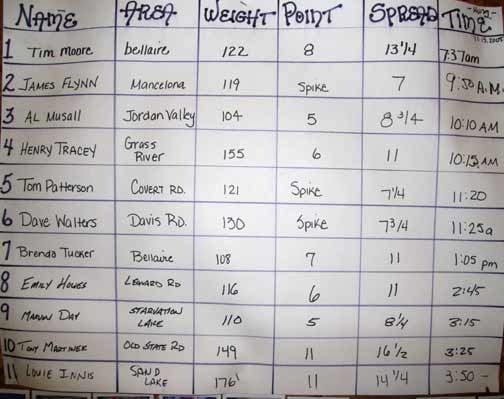 NAME AREA WEIGHT POINT SPREAD TIME
11.15.2005
1 Tim Moore bellaire 122 8 13 1/4 7:37am
2 JAMES FLYNN Mancelona 119 Spike 7 9:50 A.M.
3 AL Musall Jordan Valley 104 5 8 3/4 10:10 AM
4 HENRY TRACEY Grass River 155 6 11 10:15 AM
5 Tom Patterson COVERT RD. 121 Spike 7 1/4 11:20
6 Dave Walters Davis RD. 130 Spike 7 3/4 11:25a
7 Brenda Tucker Bellaire 108 7 11 1:05 pm
8 EMILY HOWES LEONARD RD 116 6 11 2:45
9 MARVIN DAY STARVATION LAKE 110 5 8 1/4 3:15
10 TONY MARTINEK OLD STATE RD 149 11 16 1/2 3:25
11 LOUIE INNIS SAND LAKE 176 11 14 1/4 3:50 -